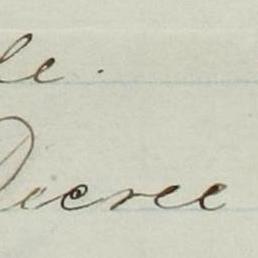 le.
Decree